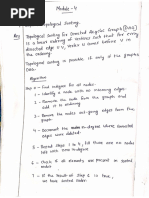 Module-4
Topological Sorting.
Topological Sorting for Directed Acyclic Graph (DAG)
is a linear ordering of vertices such that for every
directed edge U V, vertex U comes before V in
the ordering.
Topological Sorting is possible if only if the graph is
DAG.
Algorithm
Step 0 - Find indegree for all nodes-
1 - Identify a node with no incoming edges
2 - Remove the node from the graph and
add it to ordering
3 - Remove the nodes out-going edges from the
graph.
4 - Decrement the in-degree where connected
nodes were deleted.
5 - Repeat 1 to 4 till there are no nodes
left with zero in-degree
6 - Check if all elements are present in
sorted order.
7 - If the result of step 6 is true,
we have sorted order.